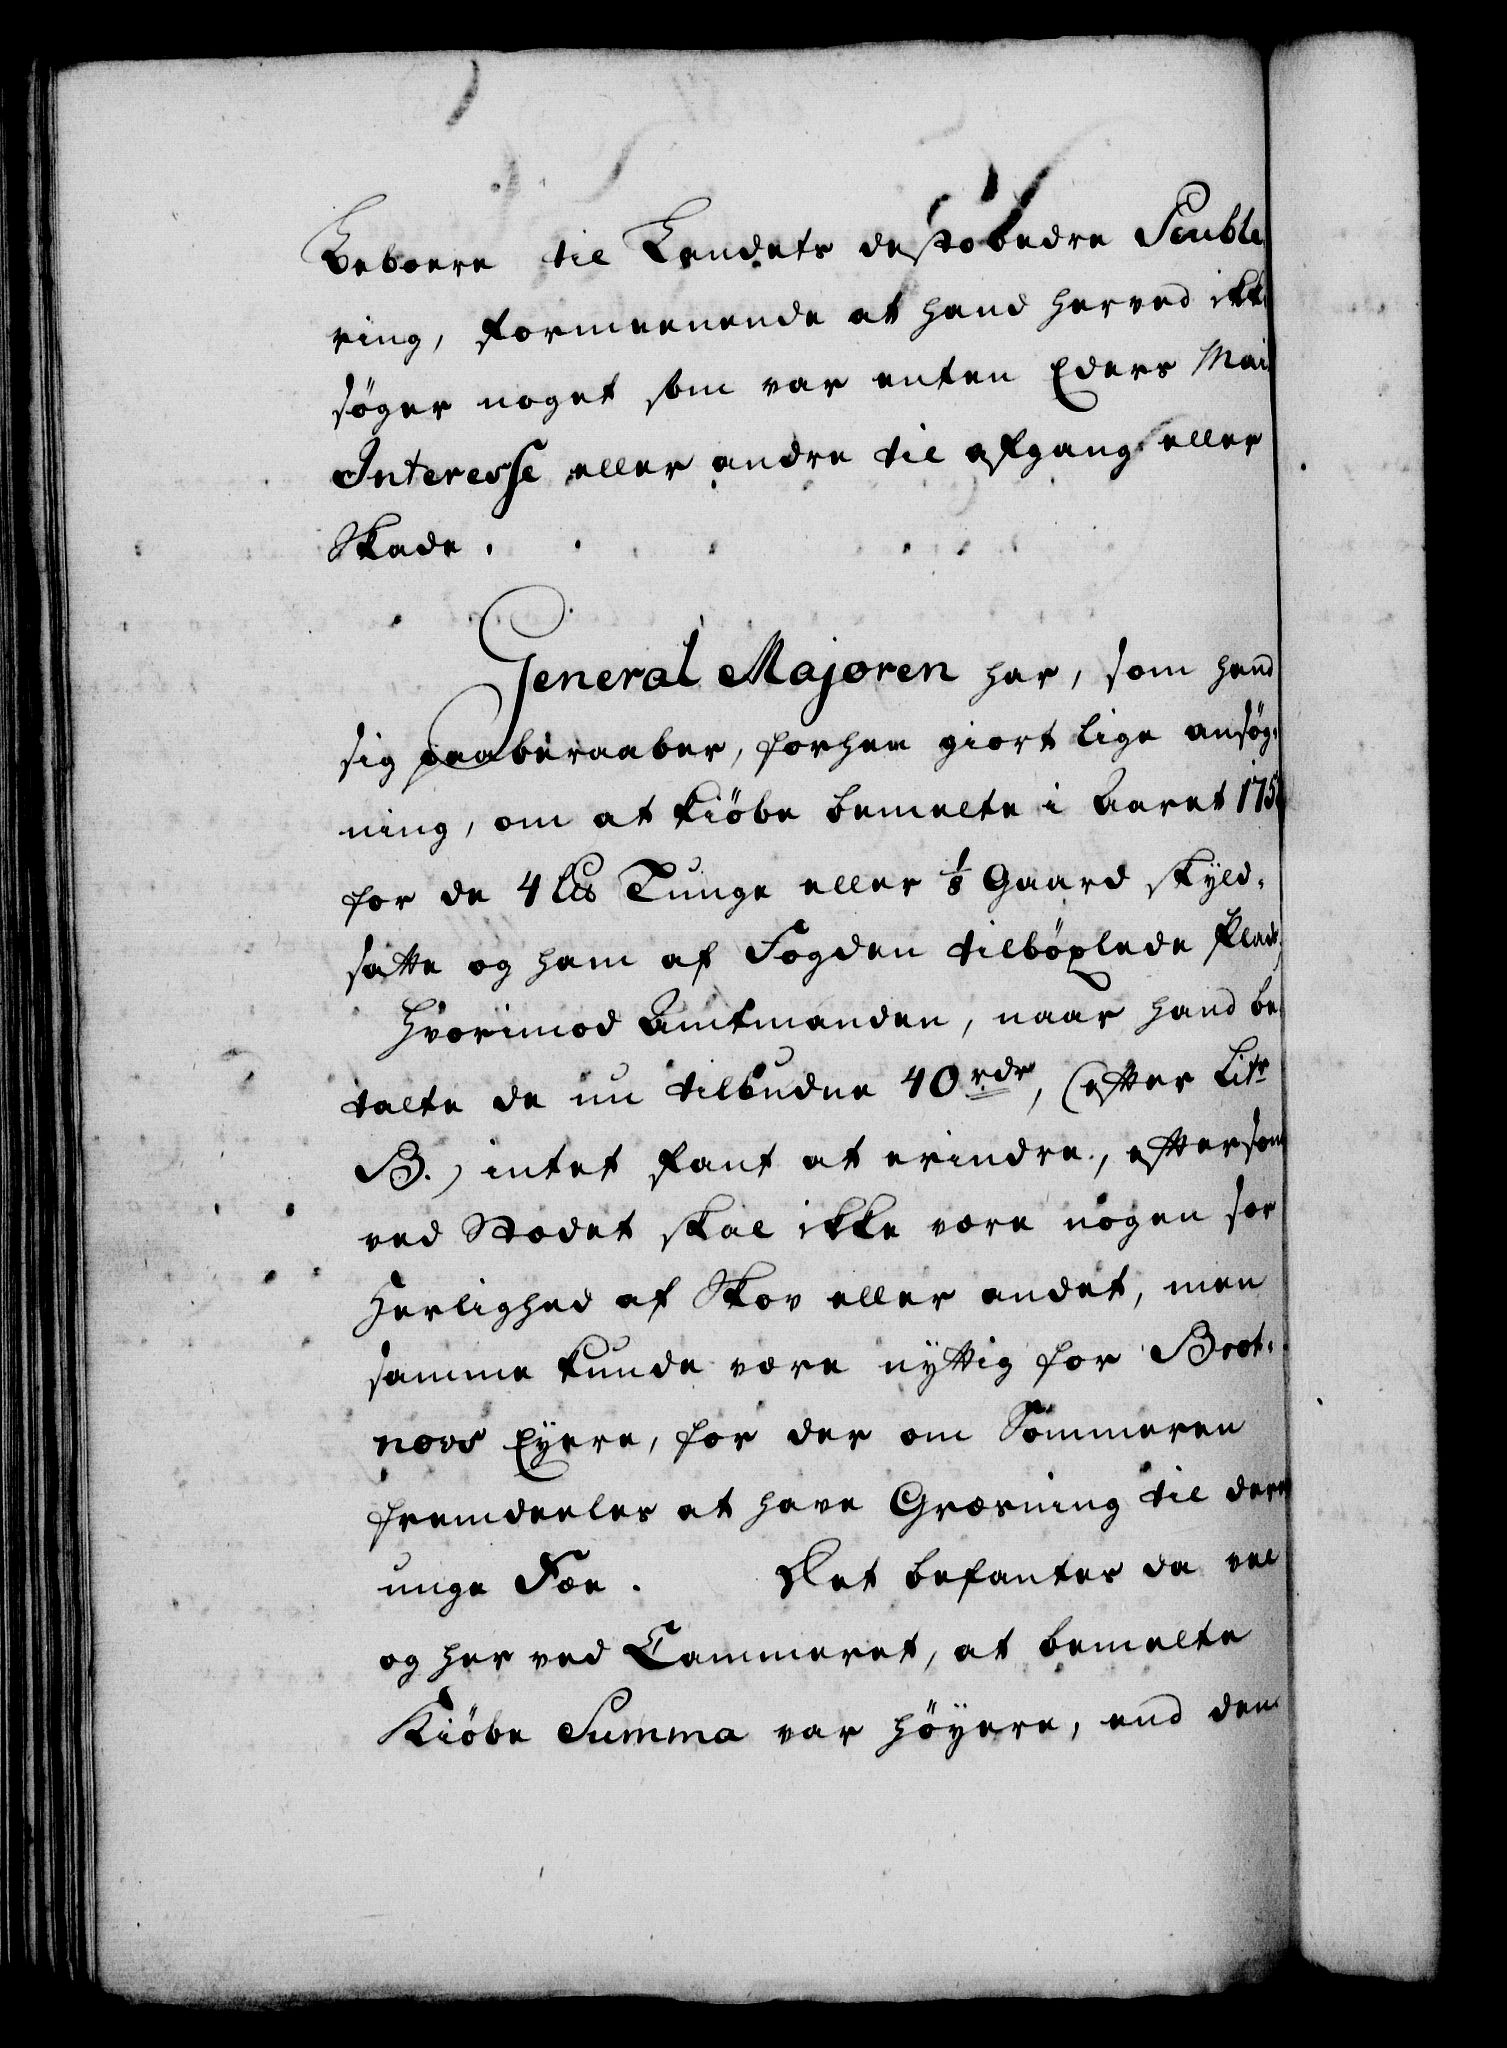 Beboere til Landets destobedre Peuble
ring, formeenende at hand herved ikke
søger noget som var enten Eders Mai
Interesse eller andre til afgang eller
Skade.
General Majoren har, som hand
sig paaberaaber, forhen giort lige ansøg-
ning, om at kiøbe bemelte i Aaret 175
for de 4 Lis Tunge eller 1/8 Gaard skyld-
satte og ham af Fogden tilböxlede Plads,
Hvorimod Amtmanden, naar hand be
talte de nu tilbudne 40 rdr, (efter Litr
B.) intet fant at erindre, eftersom
ved Stædet skal ikke være nogen sær
Herlighed af Skov eller andet, men
samme kunde være nyttig for Brot-
næs Eyere, for der om Sommeren
fremdeeles at have Græsning til deres
unge Fæe. Det befantes da vel
og her ved Cammeret, at bemelte
Kiöbe Summa var höyere, end den